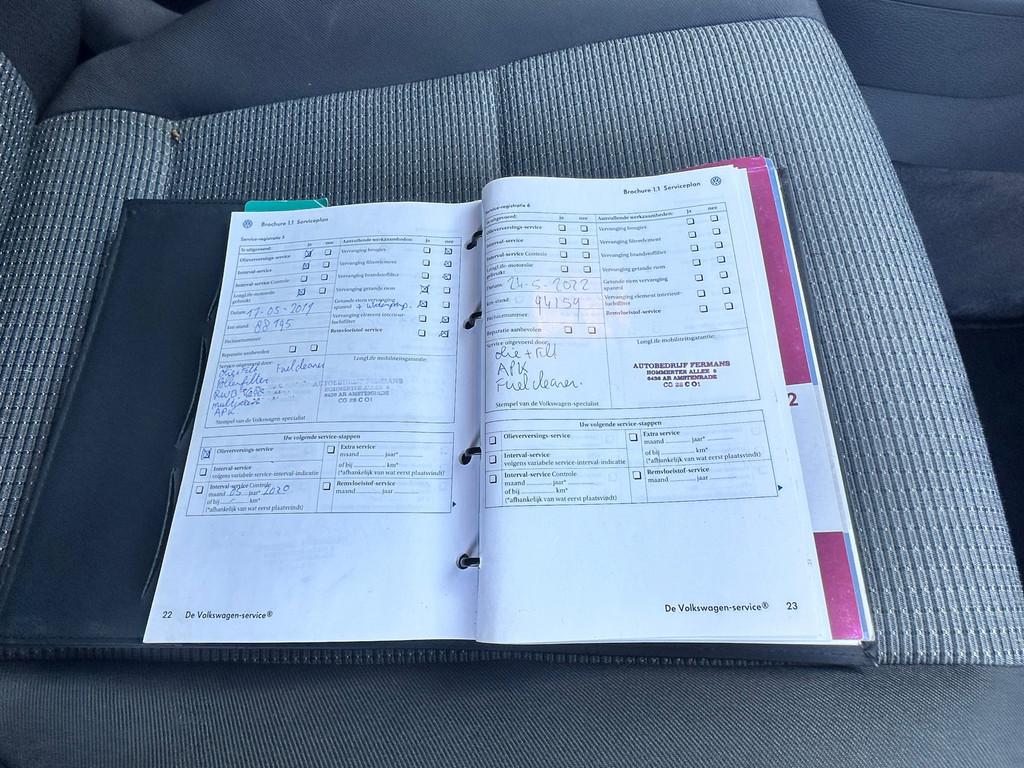 Brochure 1.1 Serviceplan
Service-registratie 5
Te uitgevoerd: ja nee
Olieverversings-service
Interval-service
Interval-service Controle
LongLife-motorolie
gebruikt
Datum: 17-05-2019
km-stand: 88195
Factuurnummer:
Reparatie aanbevolen
Service uitgevoerd door:
Olie + Filt Fuelcleaner
Pollenfilter
APK
Stempel van de Volkswagen-specialist
Aanvullende werkzaamheden: ja nee
Vervanging bougies
Vervanging filterelement
Vervanging brandstoffilter
Vervanging getande riem
Getande riem vervanging
spannrol + Waterpomp.
Vervanging element interieur-
luchtfilter
Remvloeistof-service
LongLife mobiliteitsgarantie:
AUTOBEDRIJF FERMANS
HOMMERTER ALLEE 6
6436 AR AMSTENRADE
CG 28 C 01
Uw volgende service-stappen
Olieverversings-service
Interval-service
volgens variabele service-interval-indicatie
Interval-service Controle
maand 05 jaar* 2020
of bij km*
(*afhankelijk van wat eerst plaatsvindt)
Extra service
maand jaar*
of bij km*
(*afhankelijk van wat eerst plaatsvindt)
Remvloeistof-service
maand jaar
22 De Volkswagen-service®
Brochure 1.1 Serviceplan
Service-registratie 6
Te uitgevoerd: ja nee
Olieverversings-service
Interval-service
Interval-service Controle
LongLife-motorolie
gebruikt
Datum: 24-5-2022
km-stand: 94159
Factuurnummer:
Reparatie aanbevolen
Service uitgevoerd door:
Olie + Filt
APK
Fuelcleaner.
Stempel van de Volkswagen-specialist
Aanvullende werkzaamheden: ja nee
Vervanging bougies
Vervanging filterelement
Vervanging brandstoffilter
Vervanging getande riem
Getande riem vervanging
spannrol
Vervanging element interieur-
luchtfilter
Remvloeistof-service
LongLife mobiliteitsgarantie:
AUTOBEDRIJF FERMANS
HOMMERTER ALLEE 6
6436 AR AMSTENRADE
CG 28 C 01
Uw volgende service-stappen
Olieverversings-service
Interval-service
volgens variabele service-interval-indicatie
Interval-service Controle
maand jaar*
of bij km*
(*afhankelijk van wat eerst plaatsvindt)
Extra service
maand jaar*
of bij km*
(*afhankelijk van wat eerst plaatsvindt)
Remvloeistof-service
maand jaar
De Volkswagen-service® 23
2